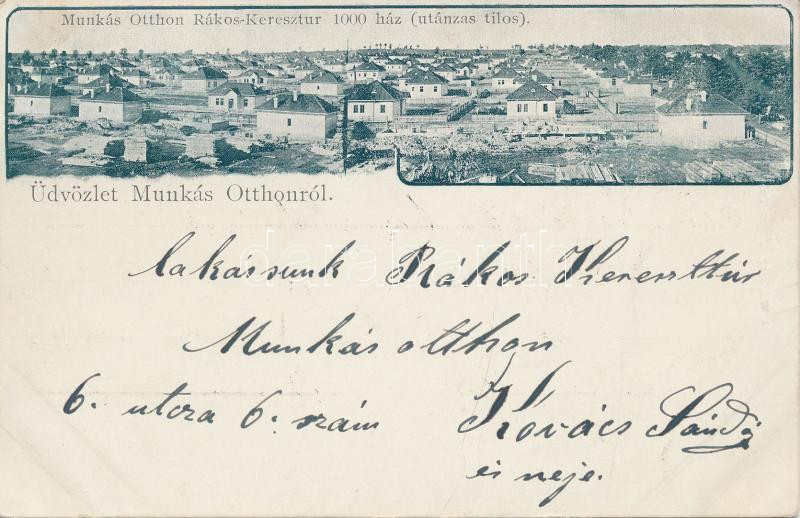 Munkás Otthon Rákos-Keresztur 1000 ház (utánzas tilos).
Üdvözlet Munkás Otthonról.
lakásunk Rákos Kereszttúr
Munkás otthon
6. utcza 6. szám
Kovács Sándor
és neje.
darabanth